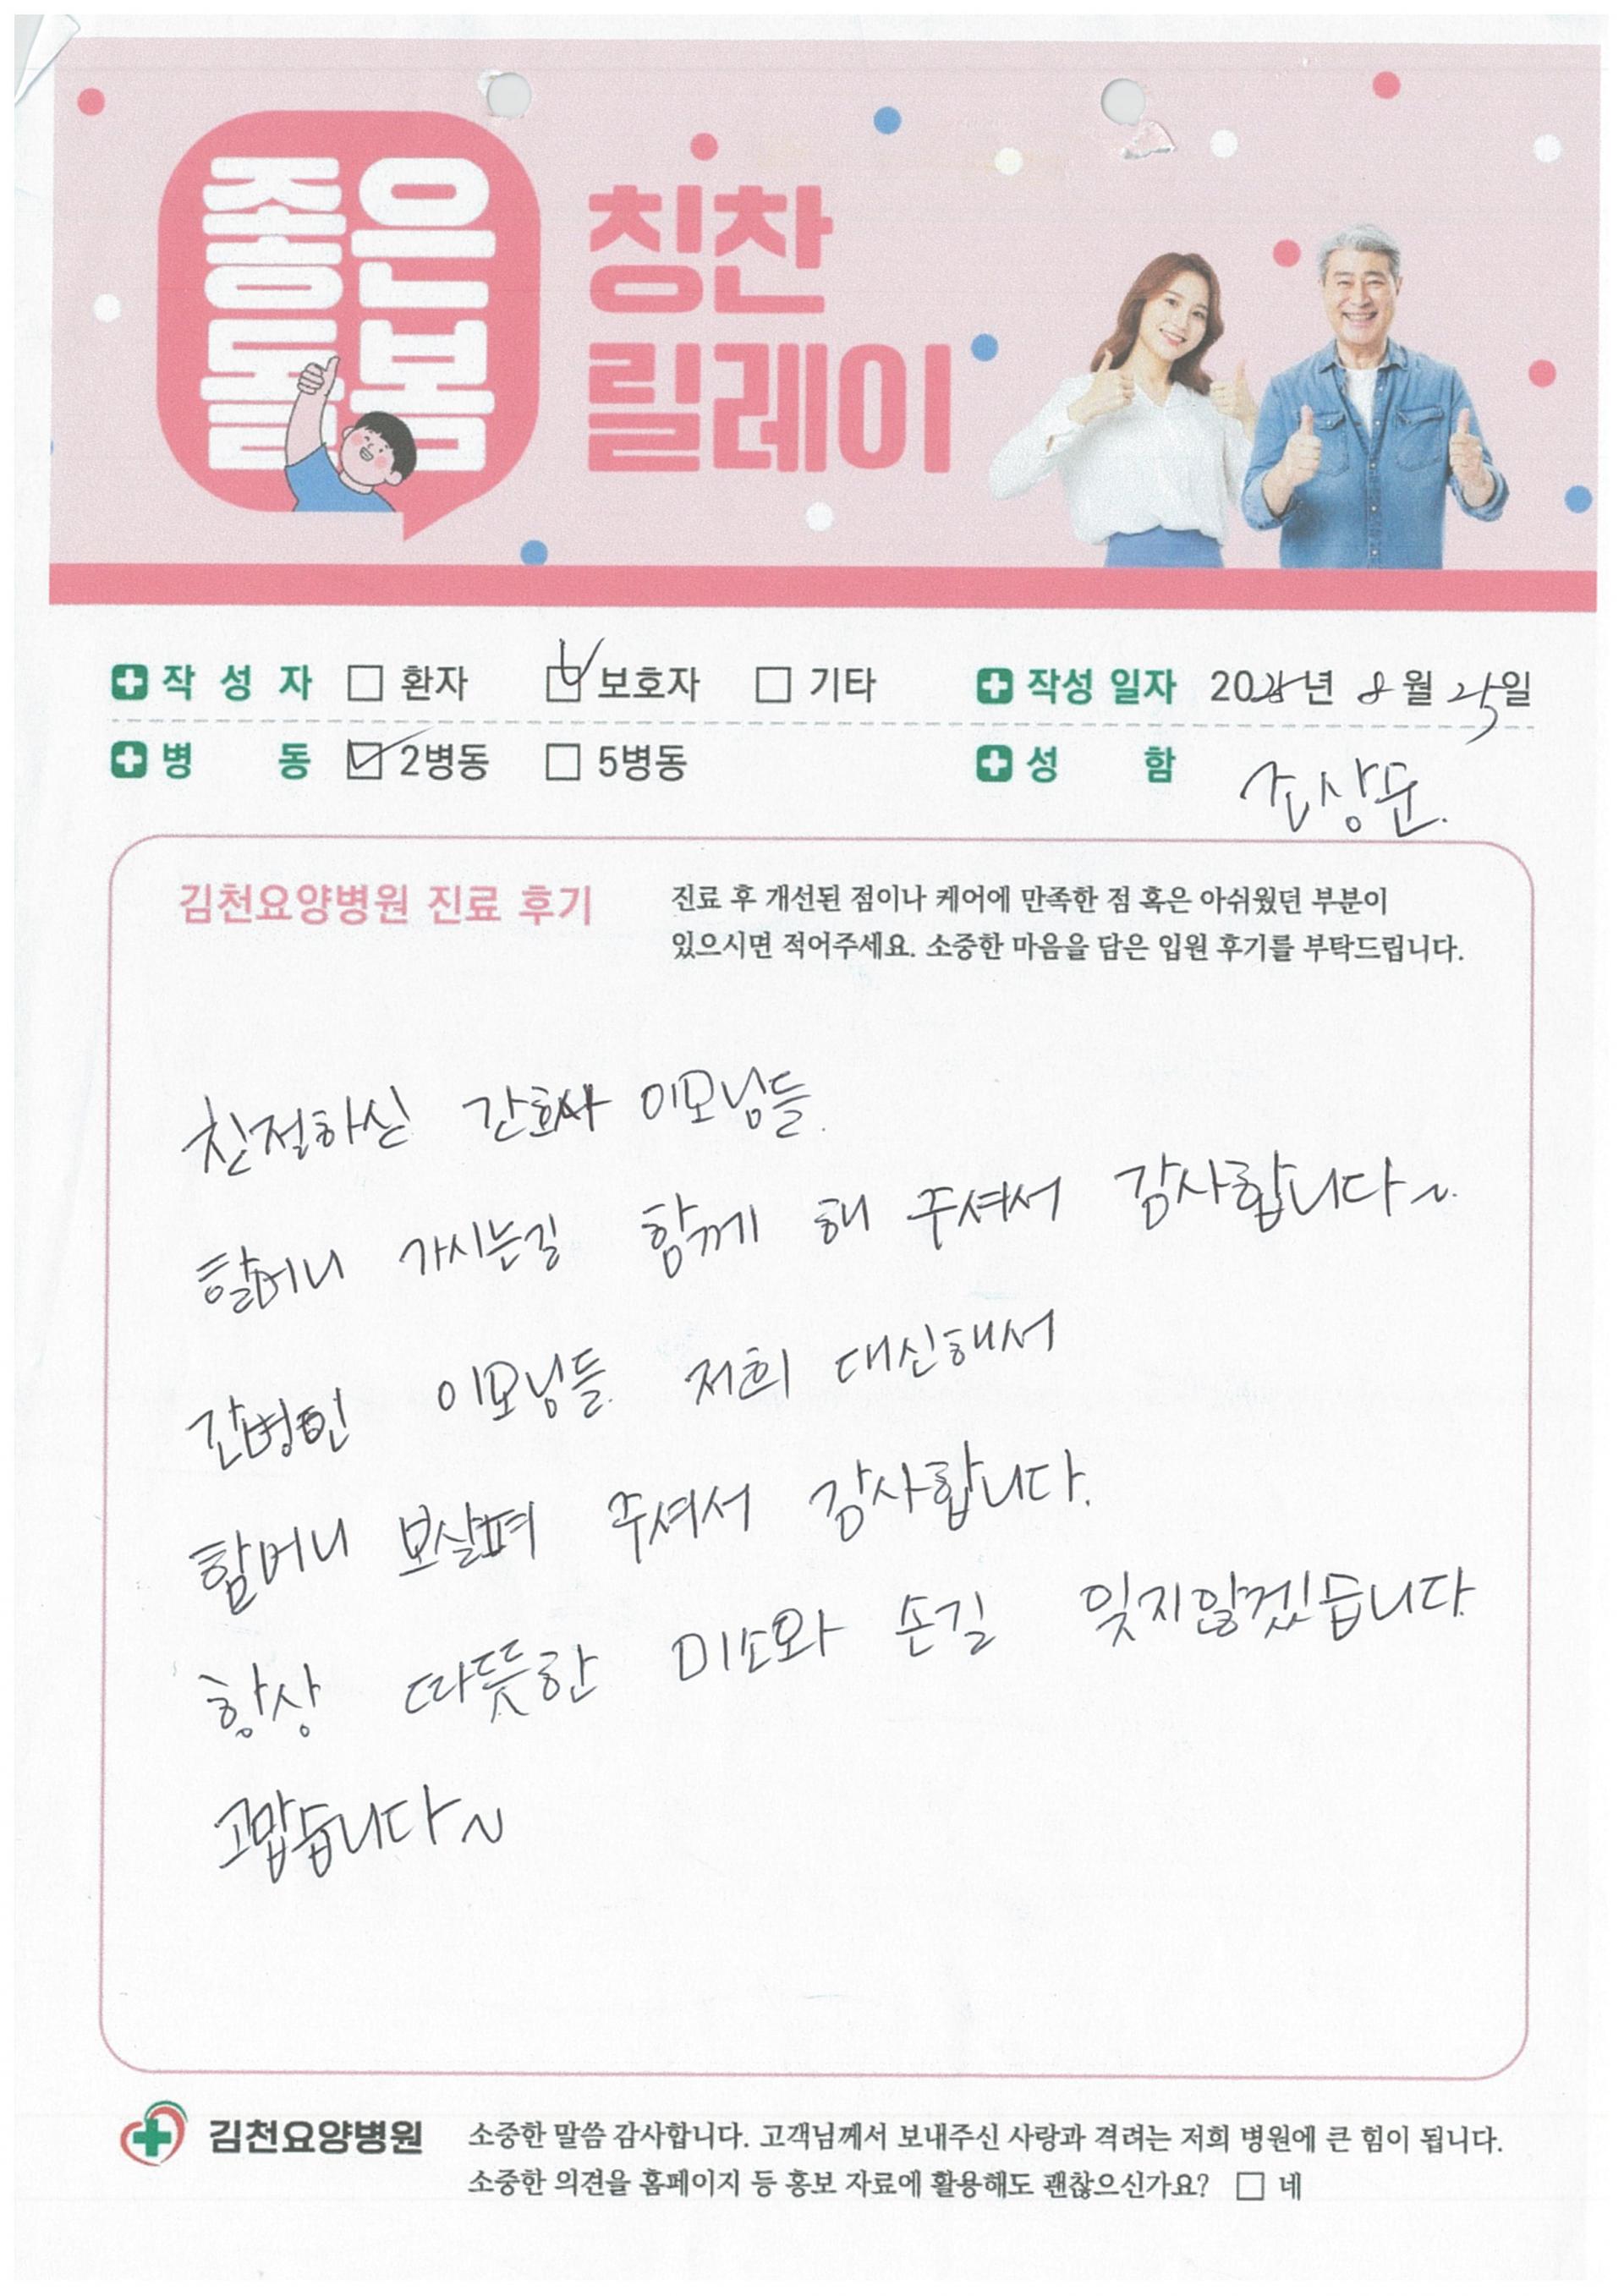 좋은
돌봄
칭찬
릴레이
작성자 환자 보호자 기타 작성 일자 20 년 8월 25일
병동 2병동 5병동 성함 조상문.
김천요양병원 진료 후기
진료 후 개선된 점이나 케어에 만족한 점 혹은 아쉬웠던 부분이
있으시면 적어주세요. 소중한 마음을 담은 입원 후기를 부탁드립니다.
친절하신 간호사 이모님들.
할머니 가시는길 함께 해 주셔서 감사합니다~.
간병인 이모님들. 저희 대신해서
할머니 보살펴 주셔서 감사합니다.
항상 따뜻한 미소와 손길 잊지않겠습니다.
고맙습니다~
김천요양병원
소중한 말씀 감사합니다. 고객님께서 보내주신 사랑과 격려는 저희 병원에 큰 힘이 됩니다.
소중한 의견을 홈페이지 등 홍보 자료에 활용해도 괜찮으신가요? 네